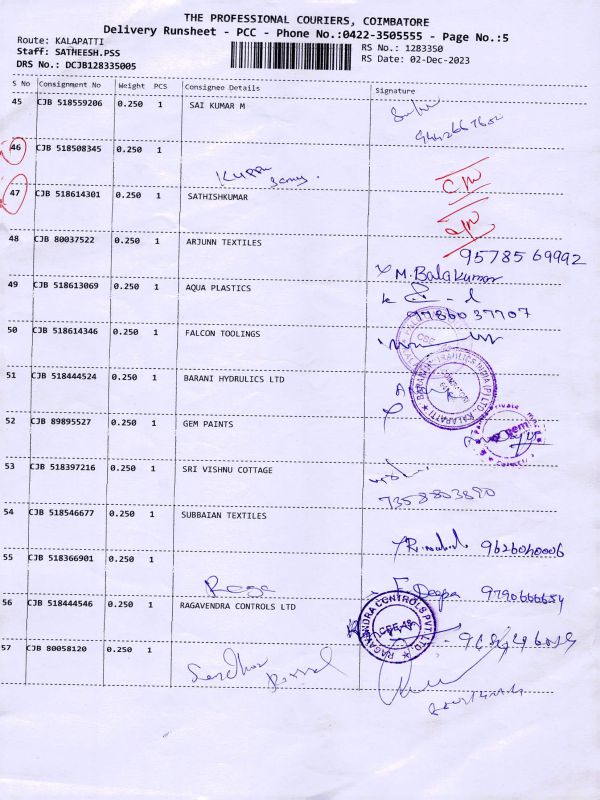 THE PROFESSIONAL COURIERS, COIMBATORE
Delivery Runsheet - PCC - Phone No.:0422-3505555 - Page No.:5
Route: KALAPATTI
RS No.: 1283350
Staff: SATHEESH.PSS
RS Date: 02-Dec-2023
DRS No.: DCJB128335005
S No Consignment No Weight PCS Consignee Details Signature
45 CJB 518559206 0.250 1 SAI KUMAR M
46 CJB 518508345 0.250 1
Kuppu
Samy.
47 CJB 518614301 0.250 1 SATHISHKUMAR
48 CJB 80037522 0.250 1 ARJUNN TEXTILES
9578569992
M. Balakumar
49 CJB 518613069 0.250 1 AQUA PLASTICS
9786037707
50 CJB 518614346 0.250 1 FALCON TOOLINGS
51 CJB 518444524 0.250 1 BARANI HYDRULICS LTD
BARANI HYDRAULICS INDIA (P) LTD. KALAPATTI
52 CJB 89895527 0.250 1 GEM PAINTS
gem
53 CJB 518397216 0.250 1 SRI VISHNU COTTAGE
7358803890
54 CJB 518546677 0.250 1 SUBBAIAN TEXTILES
9626040006
55 CJB 518366901 0.250 1
Deepa 9790666654
56 CJB 518444546 0.250 1 RAGAVENDRA CONTROLS LTD
RAGAVENDRA CONTROLS PVT LTD
57 CJB 80058120 0.250 1